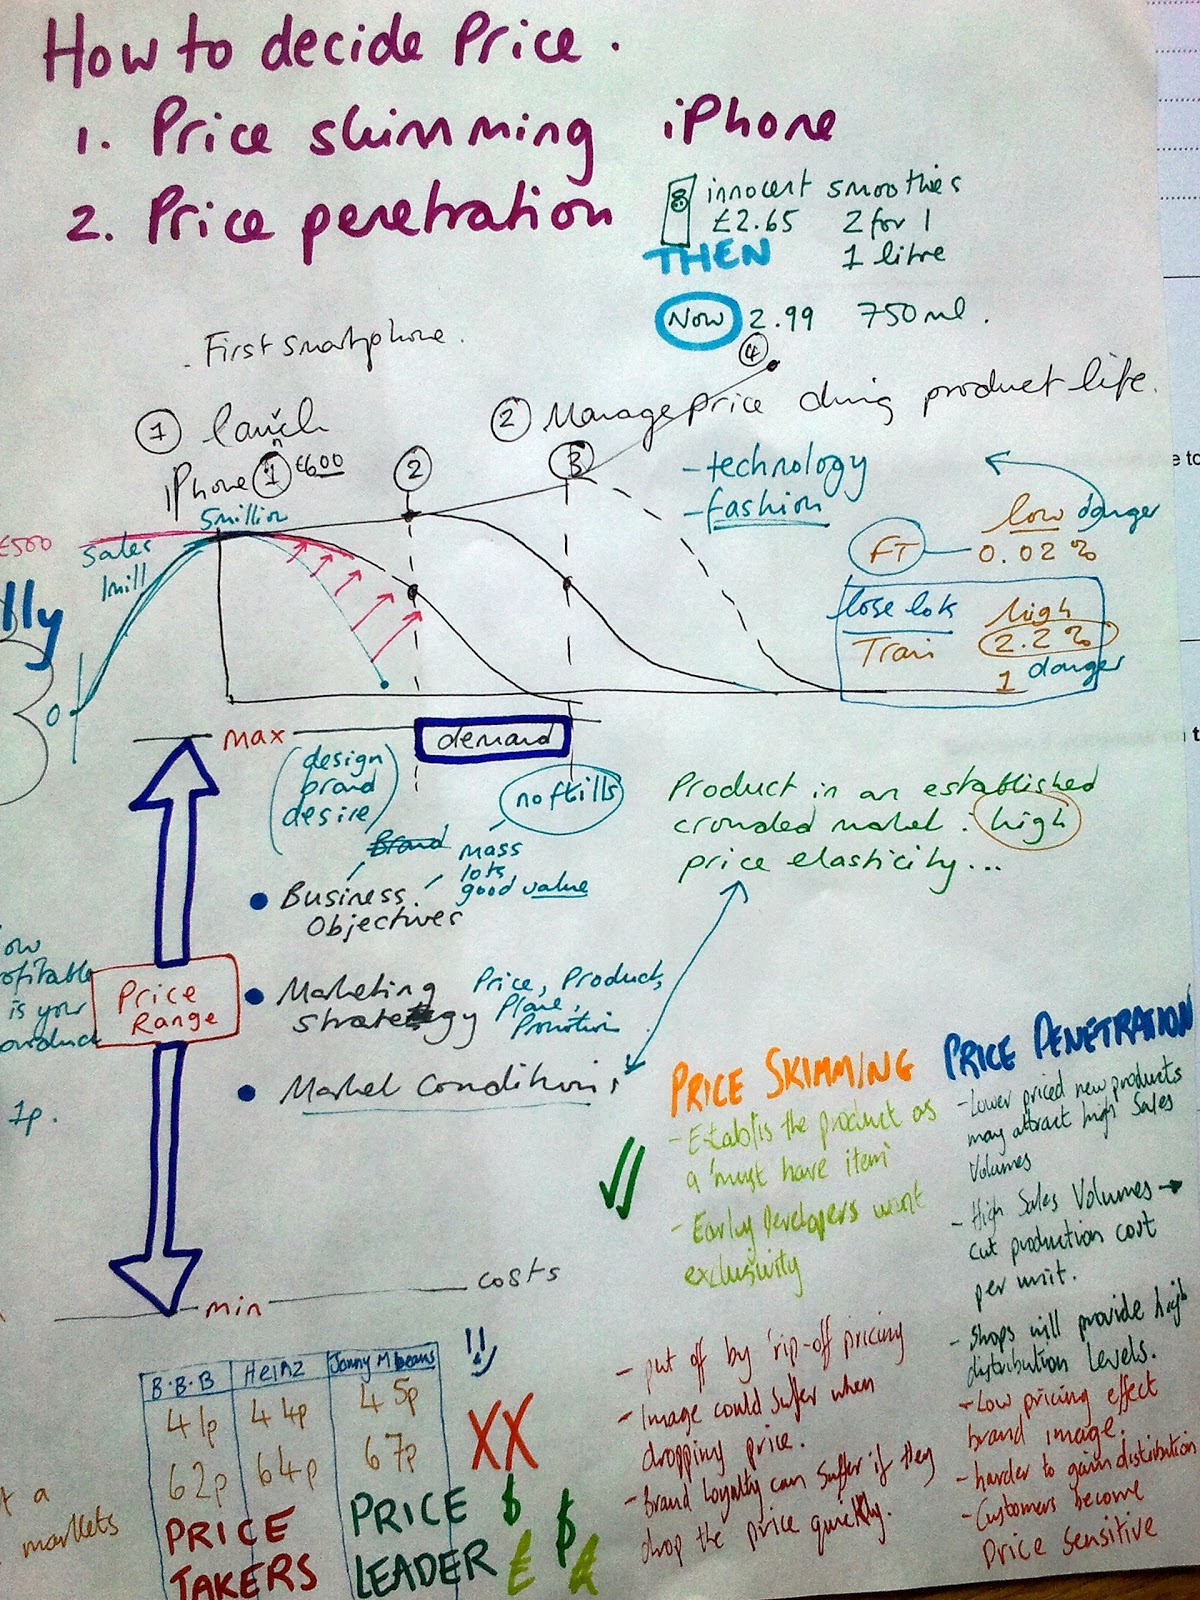 How to decide Price.
1. Price skimming iPhone
2. Price penetration
innocent smoothies
£2.65 2 for 1
THEN 1 litre
Now 2.99 750ml.
First smartphone.
4
1 launch
2 Manage price during product life.
iPhone 1 £600
2
3
5 million
£500
Sales
1mill
0
lly
- technology
- fashion
low danger
FT 0.02%
close lots high
Train 2.2%
1 danger
max
demand
(design
brand
desire)
no frills
Brand
mass
lots
good value
Product in an established
crowded market : high
price elasticity...
Business
Objectives
Marketing
strategy
Price, Product,
Place,
Promotion
Market Conditions
Price
Range
ow
rofitable
is your
product
1p.
costs
min
PRICE SKIMMING
- Establis the product as
a 'must have item'
- Early Developers want
exclusivity
- put off by 'rip-off pricing
- Image could suffer when
dropping price.
- Brand loyalty can suffer if they
drop the price quickly.
PRICE PENETRATION
- Lower priced new products
may attract high Sales
Volumes
- High Sales Volumes →
cut production cost
per unit.
- Shops will provide high
distribution levels.
- Low pricing effect
brand image.
- harder to gain distribution
- Customers become
Price Sensitive
B.B.B Heinz Jonny M beans
41p 44p 45p
62p 64p 67p
XX
PRICE
TAKERS
PRICE $ $
LEADER £ £
t a
markets
e to
t